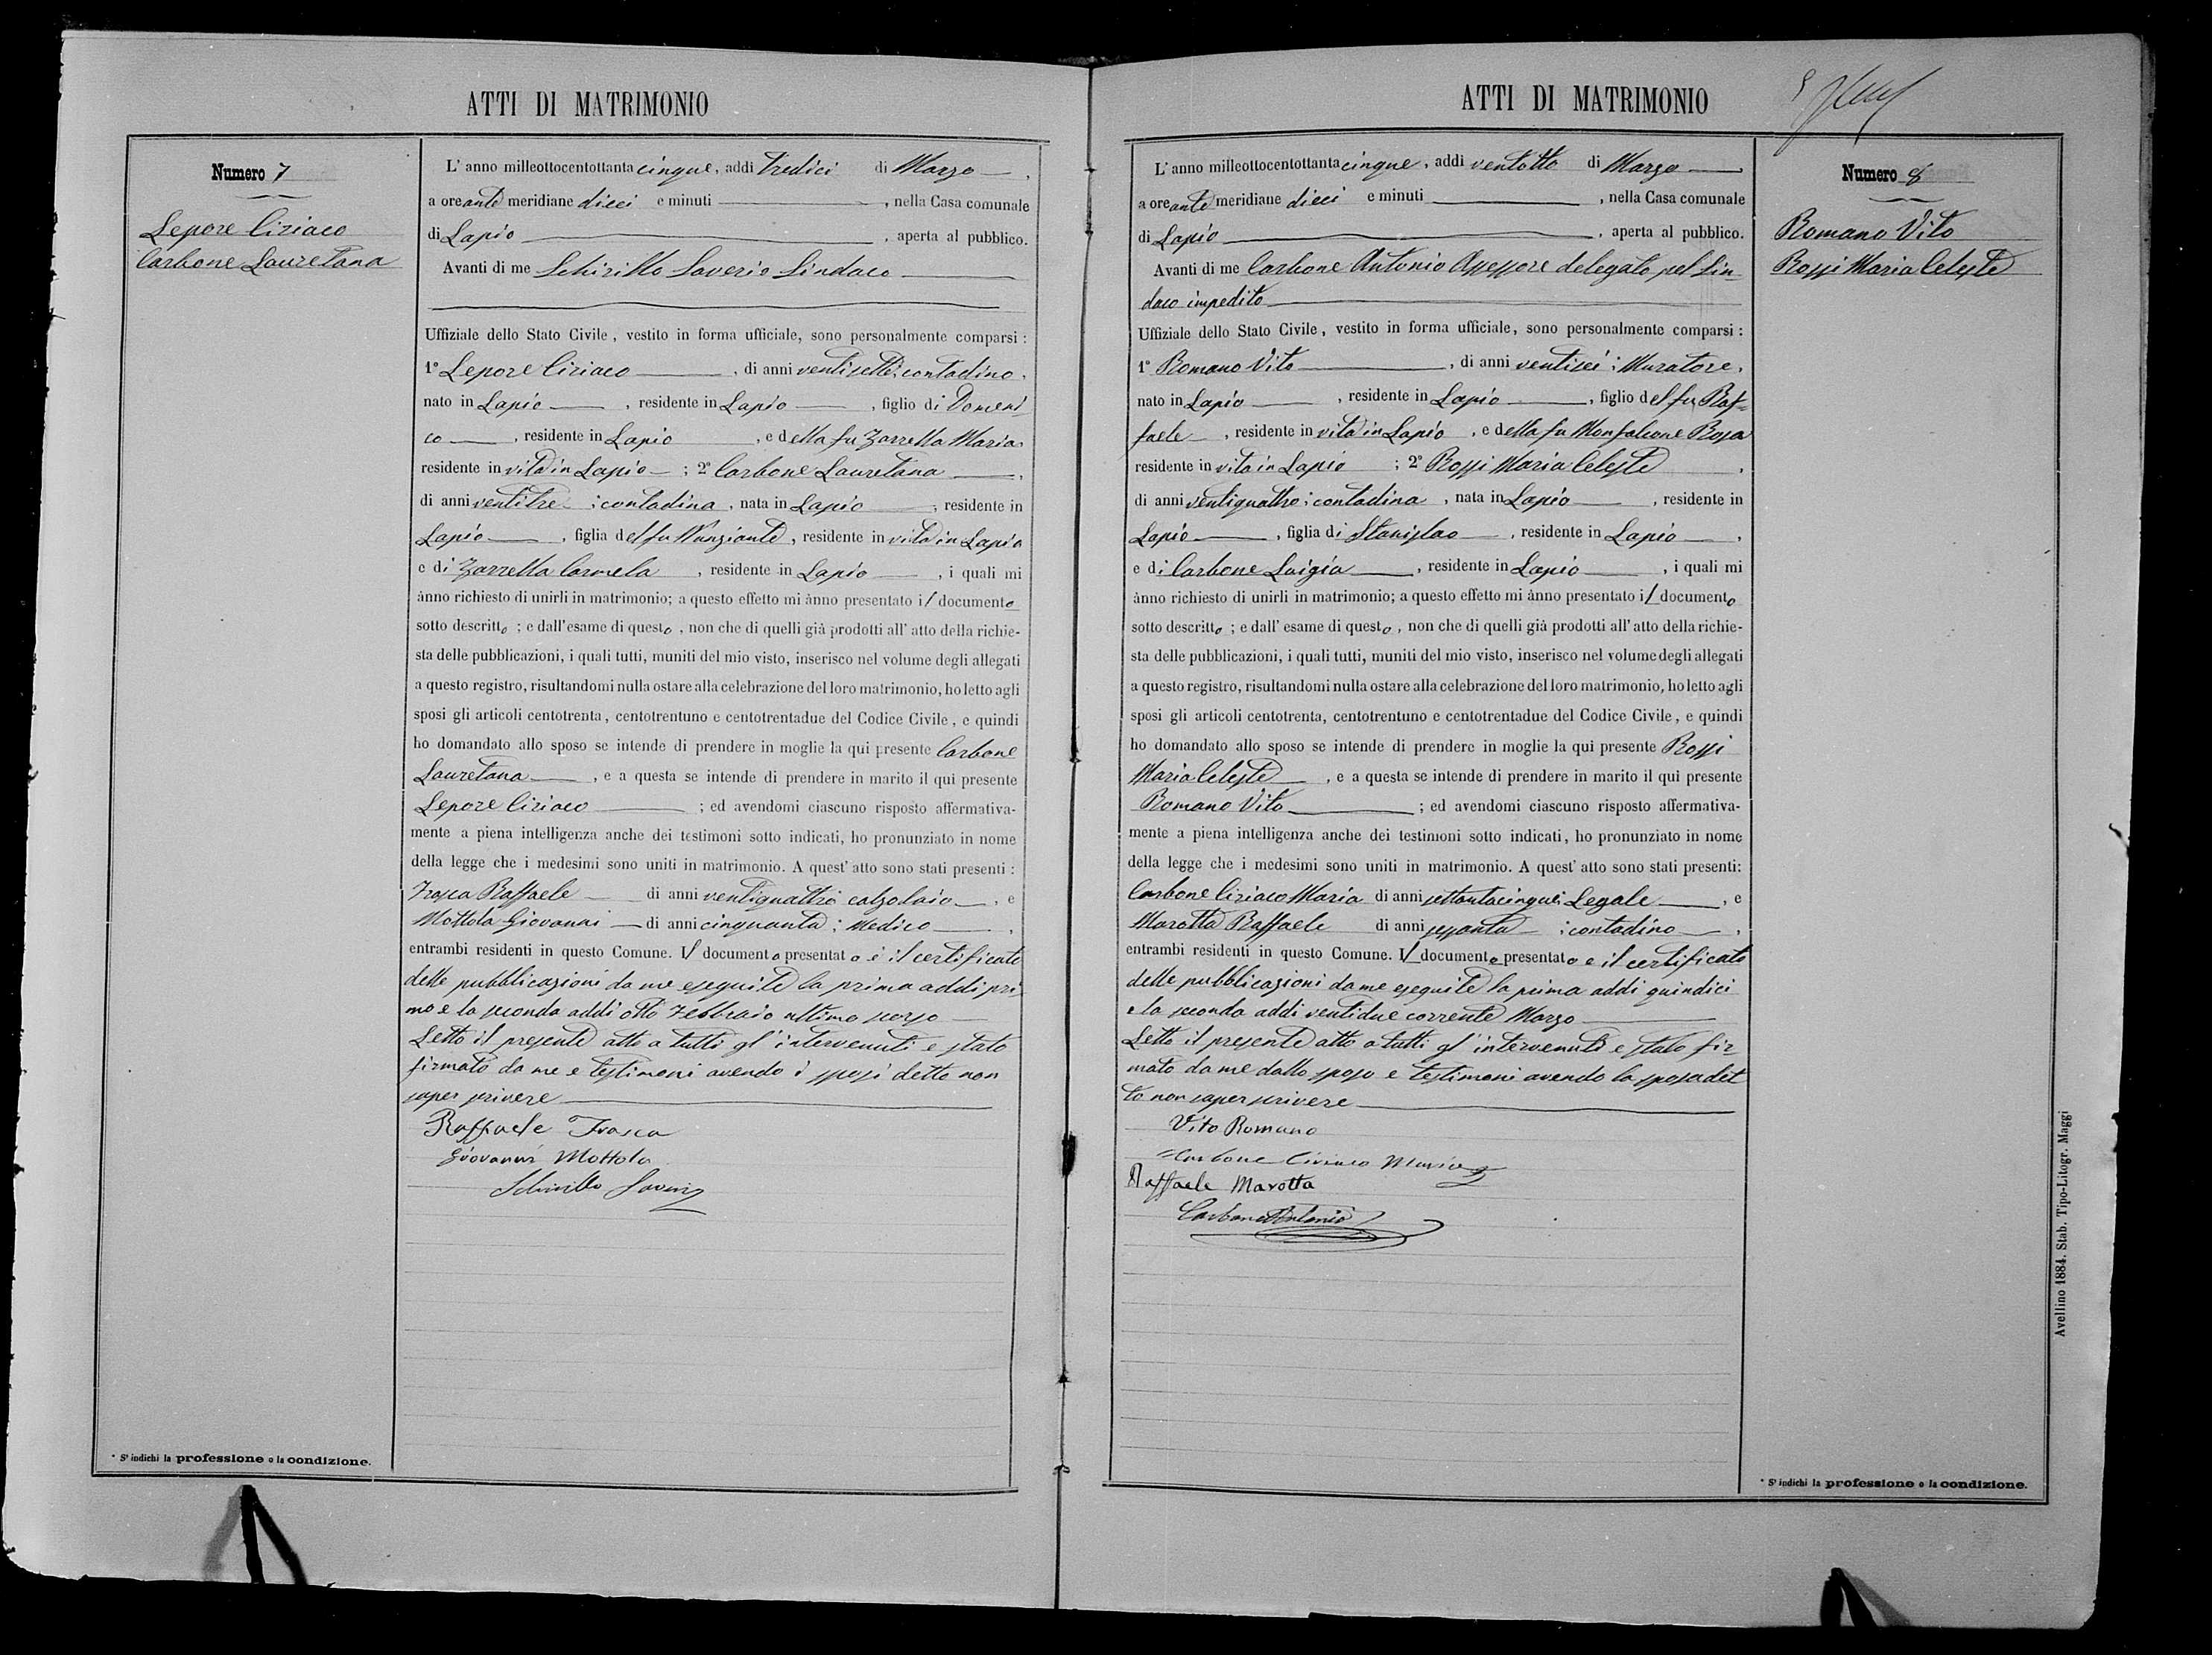 ATTI DI MATRIMONIO
Numero 7
Lepore Ciriaco
Carbone Lauretana
L' anno milleottocentottanta cinque, addi tredici di Marzo,
a ore ante meridiane dieci e minuti , nella Casa comunale
di Lapio , aperta al pubblico.
Avanti di me Schirillo Saverio Sindaco
Uffiziale dello Stato Civile, vestito in forma ufficiale, sono personalmente comparsi :
1° Lepore Ciriaco , di anni ventisette; contadino,
nato in Lapio , residente in Lapio , figlio di Domeni
co , residente in Lapio , e della fu Zarrella Maria
residente in vita in Lapio ; 2° Carbone Lauretana ,
di anni ventitre ; contadina , nata in Lapio ; residente in
Lapio , figlia del fu Nunziante, residente in vita in Lapio
e di Zarrella Carmela , residente in Lapio , i quali mi
ànno richiesto di unirli in matrimonio; a questo effetto mi ànno presentato il documento
sotto descritto ; e dall' esame di questo , non che di quelli già prodotti all' atto della richie-
sta delle pubblicazioni, i quali tutti, muniti del mio visto, inserisco nel volume degli allegati
a questo registro, risultandomi nulla ostare alla celebrazione del loro matrimonio, ho letto agli
sposi gli articoli centotrenta, centotrentuno e centotrentadue del Codice Civile, e quindi
ho domandato allo sposo se intende di prendere in moglie la qui presente Carbone
Lauretana , e a questa se intende di prendere in marito il qui presente
Lepore Ciriaco ; ed avendomi ciascuno risposto affermativa-
mente a piena intelligenza anche dei testimoni sotto indicati, ho pronunziato in nome
della legge che i medesimi sono uniti in matrimonio. A quest' atto sono stati presenti :
Frasca Raffaele di anni ventiquattro calzolaio , e
Mottola Giovanni di anni cinquanta ; Medico ,
entrambi residenti in questo Comune. Il documento presentato è il certificato
delle pubblicazioni da me eseguite la prima addi pri
mo e la seconda addi otto Febbraio ultimo scorso
Letto il presente atto a tutti gl' intervenuti e stato
firmato da me e testimoni avendo i sposi detto non
saper scrivere
Raffaele Frasca
Giovanni Mottola
Schirillo Saverio
* S' indichi la professione o la condizione.
ATTI DI MATRIMONIO
Numero 8
Romano Vito
Rossi Maria Celeste
L' anno milleottocentottanta cinque, addi ventotto di Marzo
a ore ante meridiane dieci e minuti , nella Casa comunale
di Lapio , aperta al pubblico.
Avanti di me Carbone Antonio Assessore delegato pel Sin
daco impedito
Uffiziale dello Stato Civile, vestito in forma ufficiale, sono personalmente comparsi :
1° Romano Vito , di anni ventisei ; Muratore,
nato in Lapio , residente in Lapio , figlio del fu Raf=
faele , residente in vita in Lapio , e della fu Monfalcone Rosa
residente in vita in Lapio ; 2° Rossi Maria Celeste ,
di anni ventiquattro ; contadina , nata in Lapio , residente in
Lapio , figlia di Stanislao , residente in Lapio ,
e di Carbone Luigia , residente in Lapio , i quali mi
ànno richiesto di unirli in matrimonio; a questo effetto mi ànno presentato il documento
sotto descritto ; e dall' esame di questo , non che di quelli già prodotti all' atto della richie-
sta delle pubblicazioni, i quali tutti, muniti del mio visto, inserisco nel volume degli allegati
a questo registro, risultandomi nulla ostare alla celebrazione del loro matrimonio, ho letto agli
sposi gli articoli centotrenta, centotrentuno e centotrentadue del Codice Civile, e quindi
ho domandato allo sposo se intende di prendere in moglie la qui presente Rossi
Maria Celeste , e a questa se intende di prendere in marito il qui presente
Romano Vito ; ed avendomi ciascuno risposto affermativa-
mente a piena intelligenza anche dei testimoni sotto indicati, ho pronunziato in nome
della legge che i medesimi sono uniti in matrimonio. A quest' atto sono stati presenti:
Carbone Ciriaco Maria di anni settantacinque; Legale , e
Marotta Raffaele di anni sessanta ; contadino ,
entrambi residenti in questo Comune. Il documento presentato e il certificato
delle pubblicazioni da me eseguite la prima addi quindici
e la seconda addi ventidue corrente Marzo
Letto il presente atto a tutti gl' intervenuti e stato fir
mato da me dallo sposo e testimoni avendo la sposa det
to non saper scrivere
Vito Romano
Carbone Ciriaco Maria
Raffaele Marotta
Carbone Antonio
* S' indichi la professione o la condizione.
Avellino 1884. Stab. Tipo-Litogr. Maggi